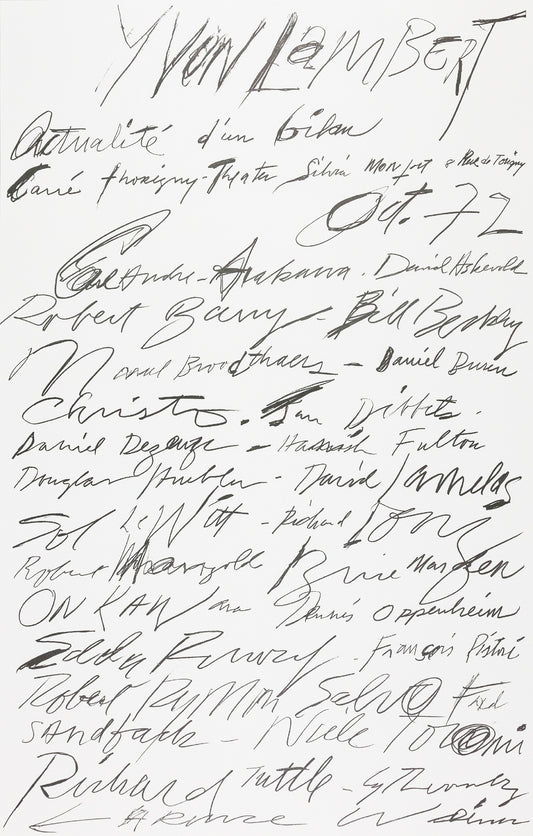 YVON LAMBERT
Actualité d'un bilan
Carré Thorigny - Theater Silvia Monfort Rue de Torigny
Oct. 72
Carl Andre - Arakawa. David Askevold
Robert Barry - Bill Beckley
Marcel Broodthaers - Daniel Buren
Christo. Jan Dibbets.
Daniel Dezeuze - Hamish Fulton
Douglas Huebler - David Lamelas
Sol LeWitt - Richard Long
Robert Mangold Brice Marden
ON KAWara Dennis Oppenheim
Edda Renouf. François Ristori
Robert Ryman Salvo Fred
SANdback - Niele Toroni
Richard Tuttle - Cy Twombly
Lawrence Weiner